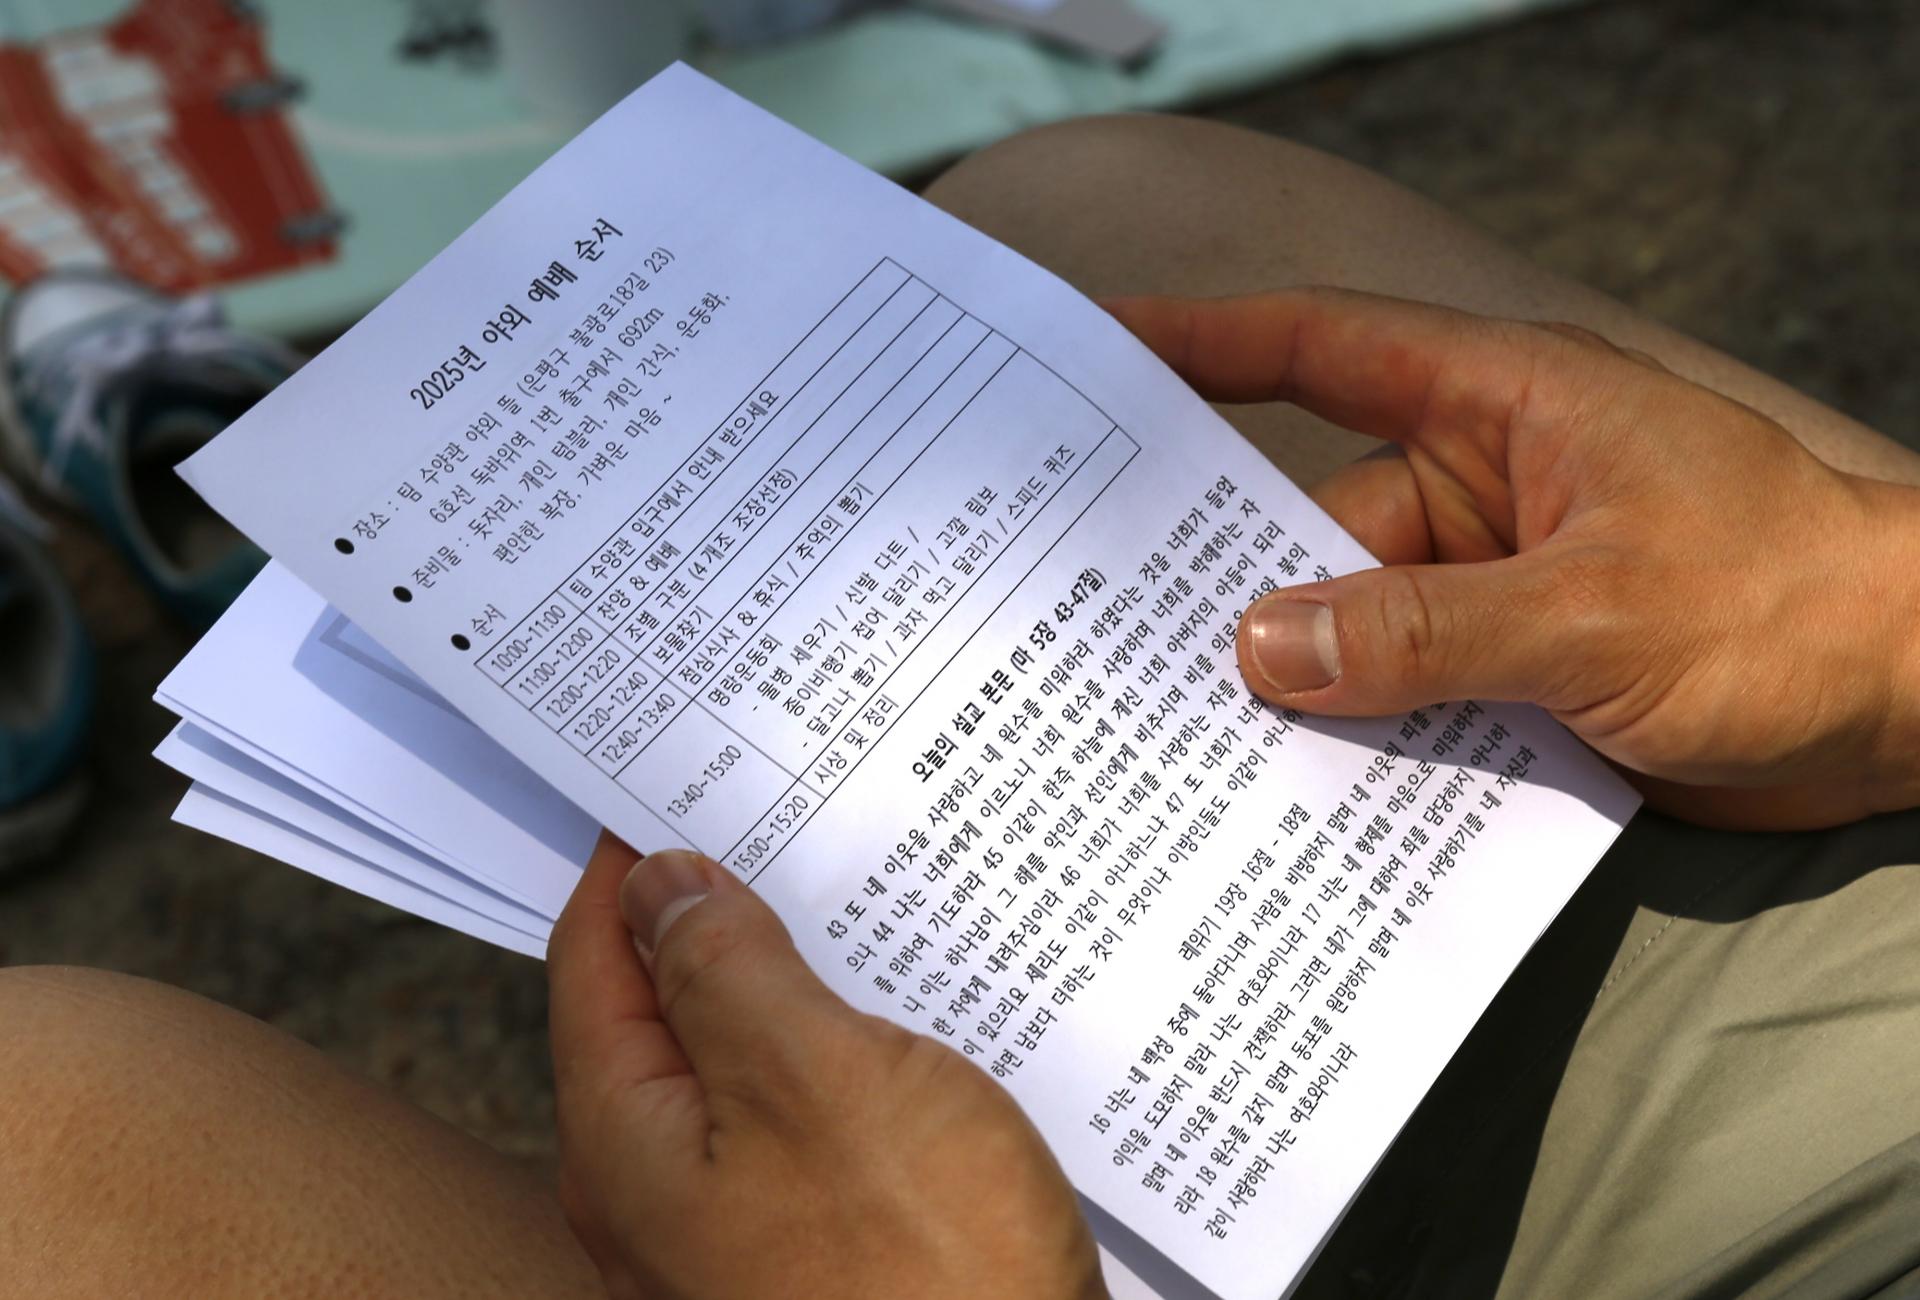 2025년 야외 예배 순서
● 장소 : 팀 수양관 야외 뜰 (은평구 불광로18길 23)
6호선 독바위역 1번 출구에서 692m
● 준비물 : 돗자리, 개인 텀블러, 개인 간식, 운동화,
편안한 복장, 가벼운 마음 ~
● 순서
10:00~11:00 팀 수양관 입구에서 안내 받으세요
11:00~12:00 찬양 & 예배
12:00~12:20 조별 구분 (4개조 조장선정)
12:20~12:40 보물찾기
12:40~13:40 점심식사 & 휴식 / 추억의 뽑기
13:40~15:00 명랑운동회
- 물병 세우기 / 신발 다트 /
종이비행기 접어 달리기 / 고깔 림보
- 달고나 뽑기 / 과자 먹고 달리기 / 스피드 퀴즈
15:00~15:20 시상 및 정리
오늘의 설교 본문 (마 5장 43-47절)
43 또 네 이웃을 사랑하고 네 원수를 미워하라 하였다는 것을 너희가 들었
으나 44 나는 너희에게 이르노니 너희 원수를 사랑하며 너희를 박해하는 자
를 위하여 기도하라 45 이같이 한즉 하늘에 계신 너희 아버지의 아들이 되리
니 이는 하나님이 그 해를 악인과 선인에게 비추시며 비를 의로운 자와 불의
한 자에게 내려주심이라 46 너희가 너희를 사랑하는 자를
이 있으리요 세리도 이같이 아니하느냐 47 또 너희가 너희
하면 남보다 더하는 것이 무엇이냐 이방인들도 이같이 아니하
레위기 19장 16절 - 18절
16 너는 네 백성 중에 돌아다니며 사람을 비방하지 말며 네 이웃의 피를
이익을 도모하지 말라 나는 여호와이니라 17 너는 네 형제를 마음으로 미워하지
말며 네 이웃을 반드시 견책하라 그러면 네가 그에 대하여 죄를 담당하지 아니하
리라 18 원수를 갚지 말며 동포를 원망하지 말며 네 이웃 사랑하기를 네 자신과
같이 사랑하라 나는 여호와이니라